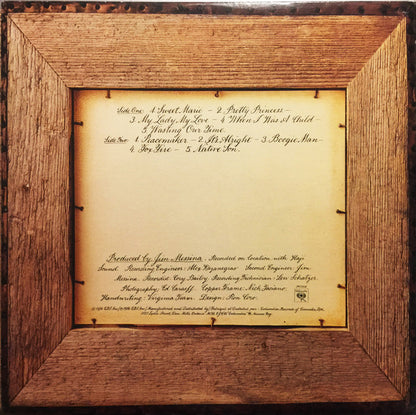 Side One 1. Sweet Marie - 2. Pretty Princess -
3. My Lady, My Love - 4. When I Was A Child -
5. Wasting Our Time.
Side Two 1. Peacemaker - 2. It's Alright - 3. Boogie Man -
4. Fox Fire - 5. Native Son.
Produced by Jim Messina. Recorded on location with Haji
Sound Recording Engineer: Alex Kazanegras Second Engineer: Jim
Messina Recordist: Corey Bailey Recording Technician: Lou Schatzer.
Photography: Ed Caraeff Copper Frame: Nick Fasciano.
Handwriting: Virginia Team Design: Ron Coro.
Manufactured and Distributed by Columbia Records of Canada, Ltd.